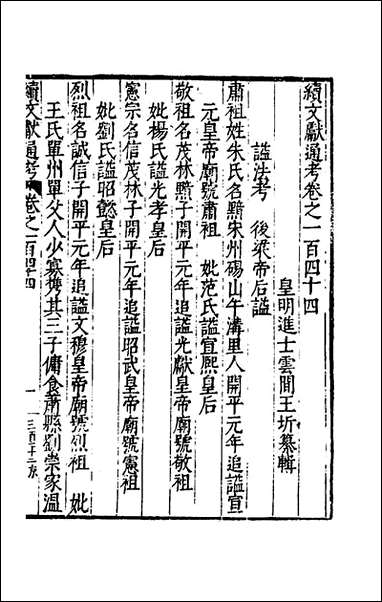 續文獻通考卷之一百四十四
皇明進士雲間王圻纂輯
謚法考　後梁帝后謚
肅祖姓朱氏名黯宋州碭山午溝里人開平元年追謚宣
元皇帝廟號肅祖　妣范氏謚宣熙皇后
敬祖名茂林黯子開平元年追謚光獻皇帝廟號敬祖
妣楊氏謚光孝皇后
憲宗名信茂林子開平元年追謚昭武皇帝廟號憲祖
妣劉氏謚昭懿皇后
烈祖名誠信子開平元年追謚文穆皇帝廟號烈祖　妣
王氏單州單父人少寡携其三子傭食蕭縣劉崇家溫
續文獻通考　卷之一百四十四
一